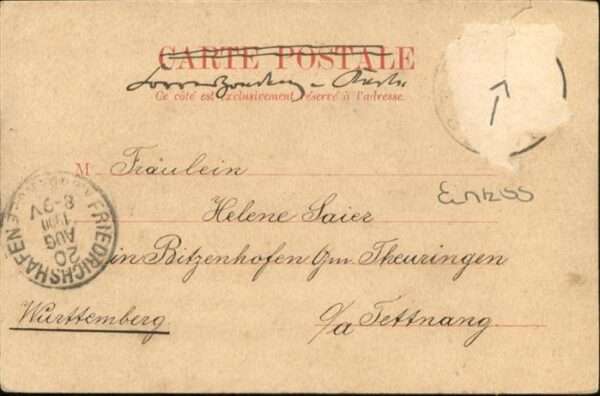 CARTE POSTALE
Ce côté est exclusivement réservé à l'adresse.
M Fräulein
Helene Saier
in Bitzenhofen Gm. Theuringen
Württemberg.
O/a Tettnang
FRIEDRICHSHAFEN
20
AUG
8-9V